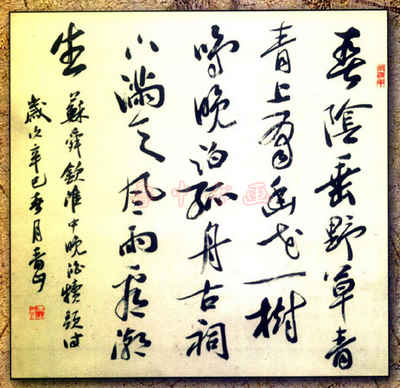 春陰垂野草青
青時有幽花一樹
明晚泊孤舟古祠
下滿川風雨看潮
生
蘇舜欽淮中晚泊犢頭詩
歲次辛巳春月